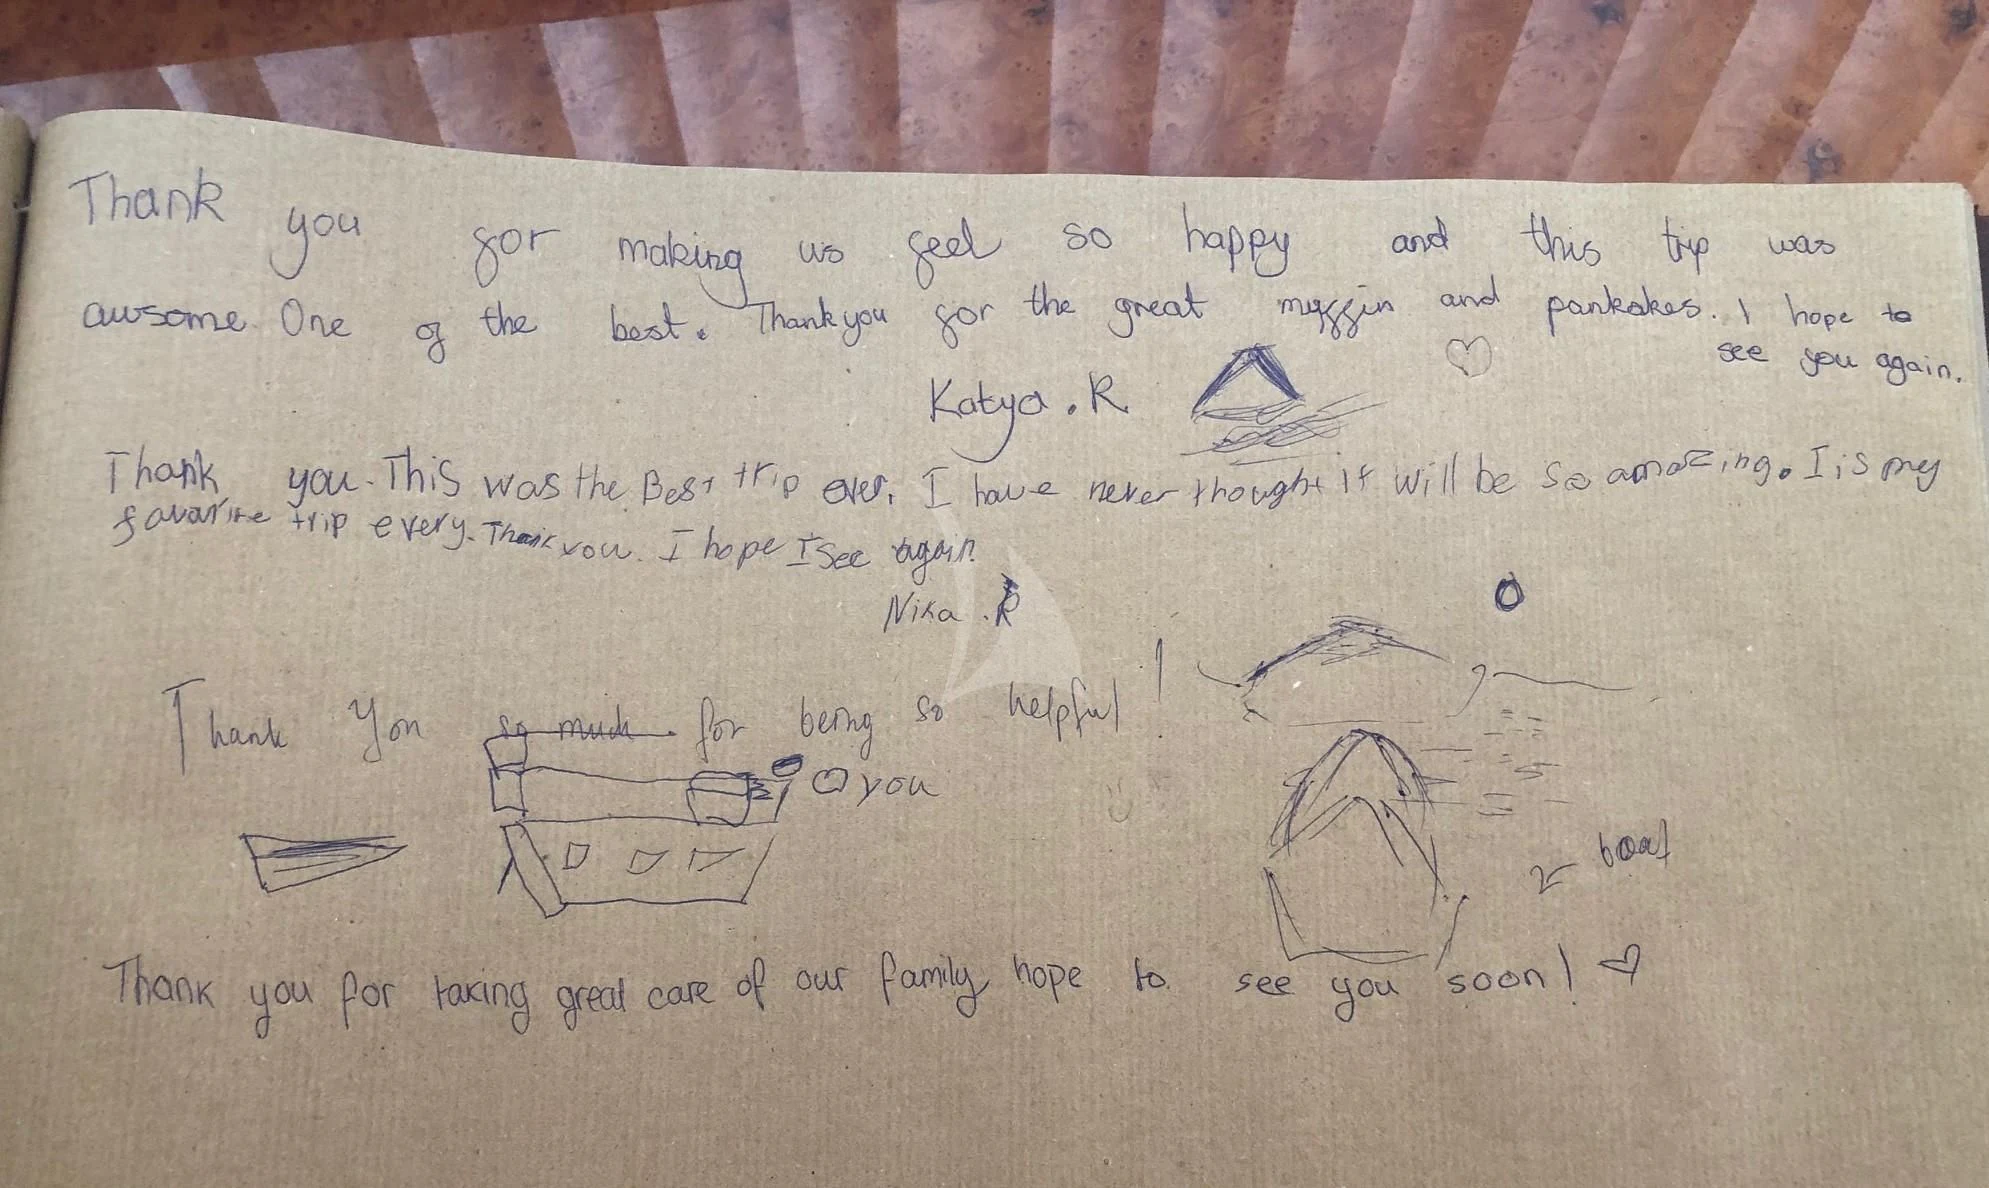 Thank you for making us feel so happy and this trip was
awsome. One of the best. Thank you for the great muffin and pankakes. I hope to
see you again.
Katya . R
Thank you. This was the Best trip ever. I have never thought it will be so amazing. I is my
favorite trip every. Thank you. I hope I see again.
Nika . R
Thank you so much for being so helpful !
you
boat
Thank you for taking great care of our family, hope to see you soon!